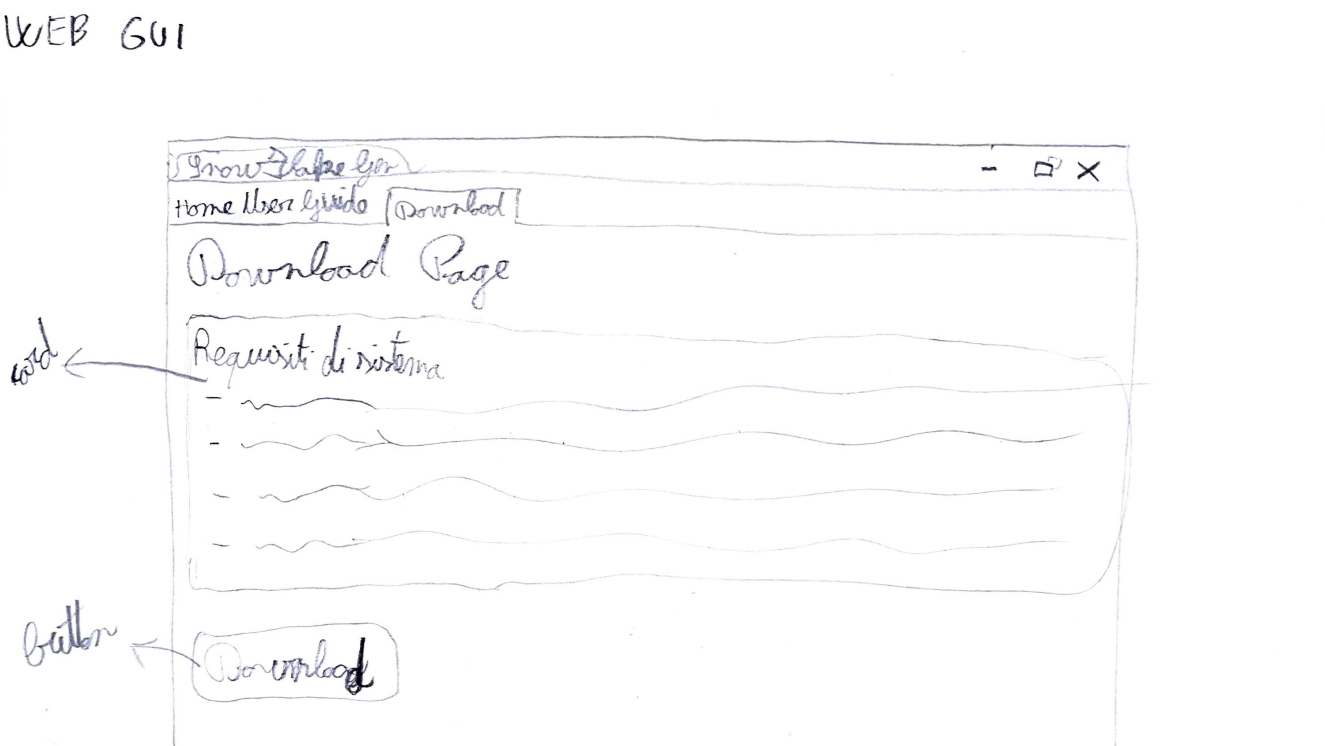 WEB GUI
SnowFlake Gen
Home User Guide Download
Download Page
Requisiti di sistema
card
button
Download